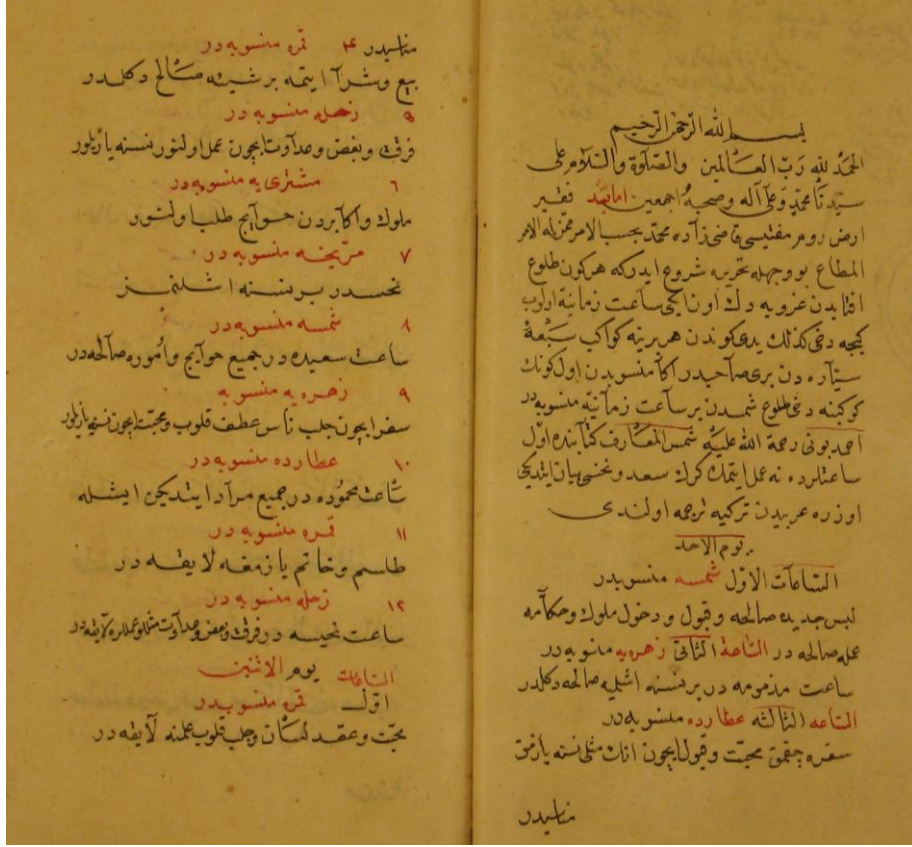 بسم الله الرحمن الرحيم
الحمد لله رب العالمين والصلاوة والسلام على
سيدنا محمد وعلى آله وصحبه اجمعين اما بعد فقير
ارض روم مفتيسى قاضى زاده محمد بحسب الامر ممن له الامر
المطاع بو وجهله تحريره شروع ايدركه هر كون طلوع
افتابدن غروبه دك اون ايكى ساعت زمانيه اولوب
كيجه دخى كذلك يدى كوندن هر برينه كواكب سبعۀ
سياره دن برى صاحبدر اكا منسوبدن اول كونك
كوكبنه دخى طلوع شمسدن بر ساعت زمانيه منسوبه در
احمد بونى رحمة الله عليه شمس المعارف كتابنده اول
ساعتلرده نه عمل ايتمك كرك سعد و نحسى بيان ايتديكى
اوزره عربيدن تركيه ترجمه اولندى
يوم الاحد
الساعات الاول شمسه منسوبدر
لبس جديده صالحه و قبول و دخول ملوك وحكامه
عمله صالحه در الساعة الثانى زهريه منسوبه در
ساعت مذمومه در بر نسنه اشلمه صالحه دكلدر
الساعه الثالثه عطارده منسوبه در
سفره چقمق محبت وقبول ايچون انك مثلى نسنه يازمق
مناسبدر
مناسبدر ۴ قمره منسوبه در
بيع وشرآ ايتمه بر شيئه صالح دكلدر
۵ زحله منسوبه در
فرقت وبغض وعداوت ايچون عمل اولنور نسنه يازيلور
٦ مشترى يه منسوبه در
ملوك واكابردن حوايج طلب اولنور
٧ مريخه منسوبه در
نحسدر بر نسنه اشلنمز
٨ شمسه منسوبه در
ساعت سعيده در جميع حوايج وأموره صالحه در
٩ زهره يه منسوبه
سفر ايچون جلب ناس عطف قلوب ومحبت ايچون نسنه يازيلور
١٠ عطارده منسوبه در
ساعت محموده در جميع مرآد ايتديكى ايشله
١١ قمره منسوبه در
طلسم وخاتم يازمغه لايقه در
١٢ زحله منسوبه در
ساعت نحيسه در فرقت وبغض وعداوت مثللو عمللره لايقه در
الساعات يوم الاثنين
اول قمره منسوبدر
محبت وعقد لسان وجلب قلوب عملنه لايقه در